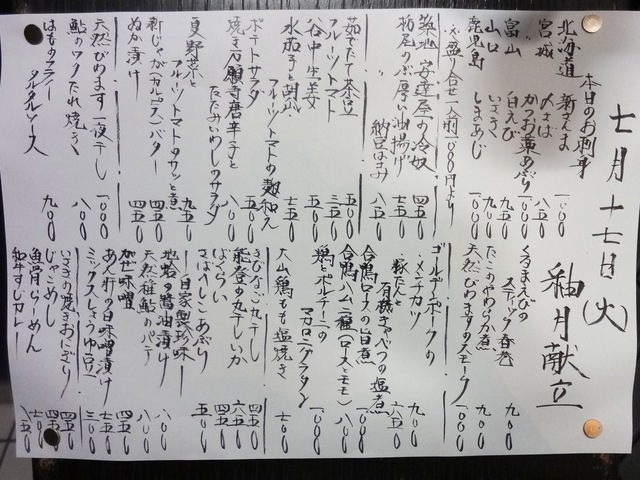 七月十七日(火)
釉月献立
本日のお刺身
北海道 新さんま 一、〇〇〇
宮城 〆さば 八五〇
富山 かつお藁あぶり 一、〇〇〇
山口 白えび 九五〇
いさき 九五〇
鹿児島 しまあじ 一、〇〇〇
盛り合せ一人前 一、〇〇〇円より
築地 安達屋の冷奴 四五〇
栃尾のジャンボ厚い油揚げ 七五〇
納豆はさみ 八五〇
茹でたて茶豆 五〇〇
フルーツトマト 三五〇
谷中生姜 五五〇
水茄子と胡瓜
フルーツトマトの麹和え 七五〇
ポテトサラダ 五五〇
焼き万願寺唐辛子と
たたみいわしのサラダ 八〇〇
夏野菜と
フルーツトマトのサッと煮 九五〇
ぬか漬け 四五〇
新じゃが(カルピス)バター 四五〇
天然ひめます一夜干し 一、〇〇〇
鮎のワタたれ焼き 八〇〇
はものフライ
タルタルソース 九〇〇
くるまえびの
スティック春巻 九〇〇
たこのやわらか煮 九〇〇
天然ひめますのスモーク 一、〇〇〇
ゴールデンポークの
メンチカツ 九〇〇
豚たんと
有機キャベツの塩煮 六五〇
合鴨ロースの旨煮 一、〇〇〇
合鴨ハム二種(ロースとモモ) 八〇〇
鶏とポルチーニの
マカロニグラタン 一、〇〇〇
大山鶏もも塩焼き 七〇〇
きびなご丸干し 四五〇
能登の丸干しいか 六五〇
ばくらい 五五〇
さばへしこあぶり 五五〇
―自家製珍味―
地蛤の醤油漬け 八〇〇
天然稚鮎のパテ 八〇〇
がぜ味噌 四五〇
あん肝の白味噌漬け 七五〇
ミックスしょうゆ豆 三五〇
いさきの焼きおにぎり 四五〇
じゃこめし 四五〇
魚骨らーめん 七〇〇
和牛すじカレー 八五〇